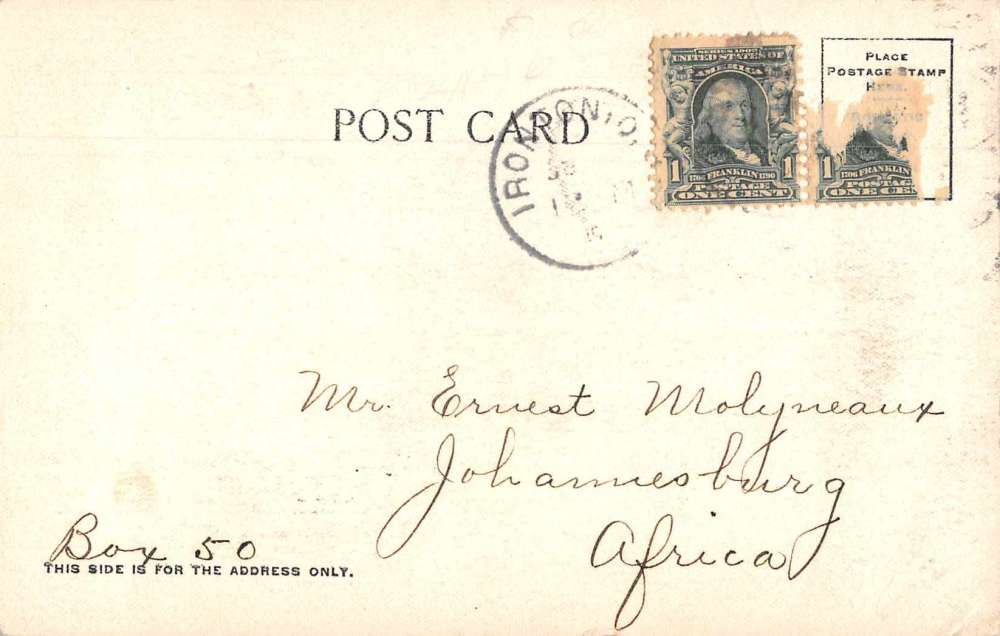 PLACE
POSTAGE STAMP
POST CARD
IRONTON, O.
SERIES 1902
UNITED STATES OF
AMERICA
1 1
1706 FRANKLIN 1790
POSTAGE
ONE CENT
1
1706 FRANKLIN
POSTAG
ONE CE
Mr. Ernest Molyneaux
Johannesburg
Africa
Box 50
THIS SIDE IS FOR THE ADDRESS ONLY.